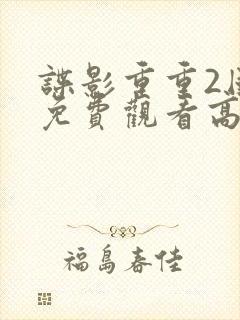 諜影重重2
免費觀看高
福島春佳